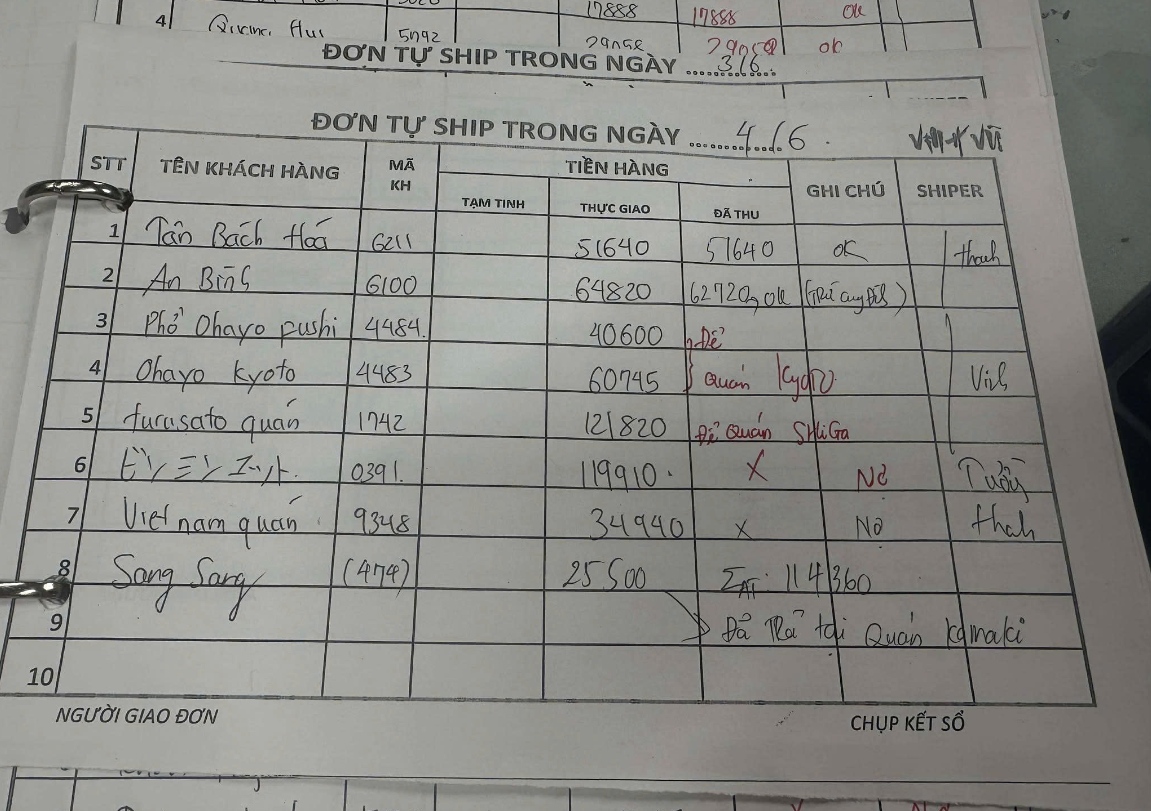 4 Hui 5092
17888 17888 ok
ok
ĐƠN TỰ SHIP TRONG NGÀY ............3/6.
ĐƠN TỰ SHIP TRONG NGÀY ............4/6.
Vũ
STT TÊN KHÁCH HÀNG MÃ KH TIỀN HÀNG GHI CHÚ SHIPER
TẠM TINH THỰC GIAO ĐÃ THU
1 Tân Bách Hoá 6211 51640 51640 OK thanh
2 An Bình 6100 64820 62720 ok
3 Phở Ohayo pushi 4484. 40600 Để
4 Ohayo kyoto 4483 60745 quán kyoto Vinh
5 furusato quán 1742 121820 Để Quán SHiGa
6 ビンミンエット. 0391. 119910. X Nợ
7 Viet nam quán 9348 34940 x Nợ thah
8 Sang Sang (474) 25500 114360
9 Đã trả tại Quán kamaki
10
NGƯỜI GIAO ĐƠN CHỤP KẾT SỔ